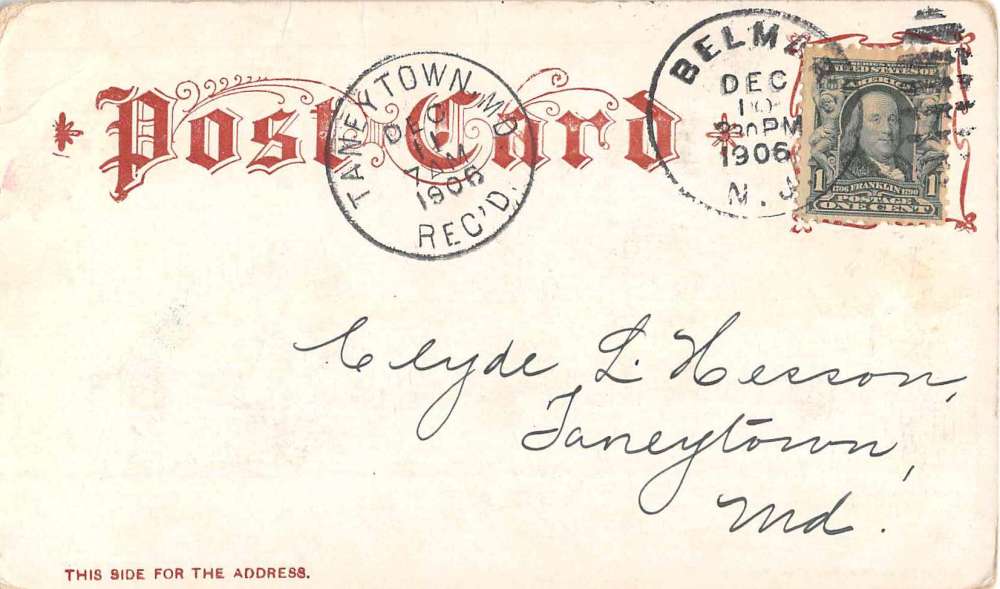 Post Card
TANEYTOWN, MD.
DEC
11
7 AM
1906
REC'D.
DEC
10
230 PM
1906
N. J.
UNITED STATES OF
AMERICA
1 1706 FRANKLIN 1790 1
POSTAGE
ONE CENT
Clyde L. Hesson,
Taneytown,
Md.
THIS SIDE FOR THE ADDRESS.